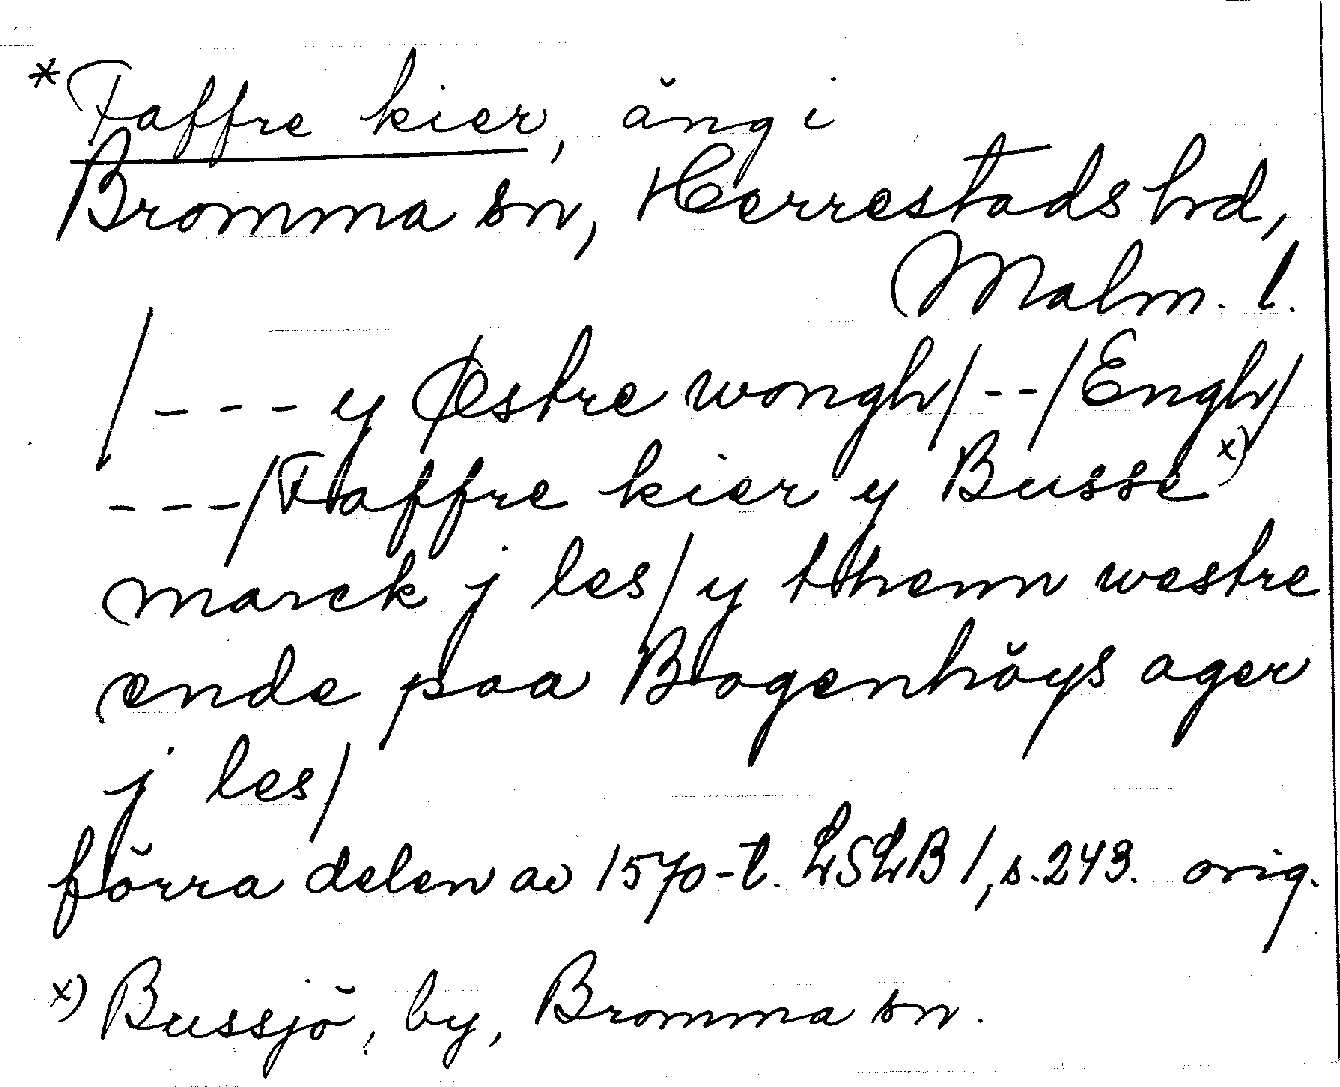 *Faffre kier, äng i
Bromma sn, Herrestads hd,
Malm. l.
/ - - - y Østre wongh/ - - /Engh/
- - - /Faffre kier y Busse x)
marck j les/ y tthenn westre
ende paa Bogenhöys ager
j les/
förra delen av 1570-t. LSLB 1, s. 243. orig.
x) Bussjö, by, Bromma sn.